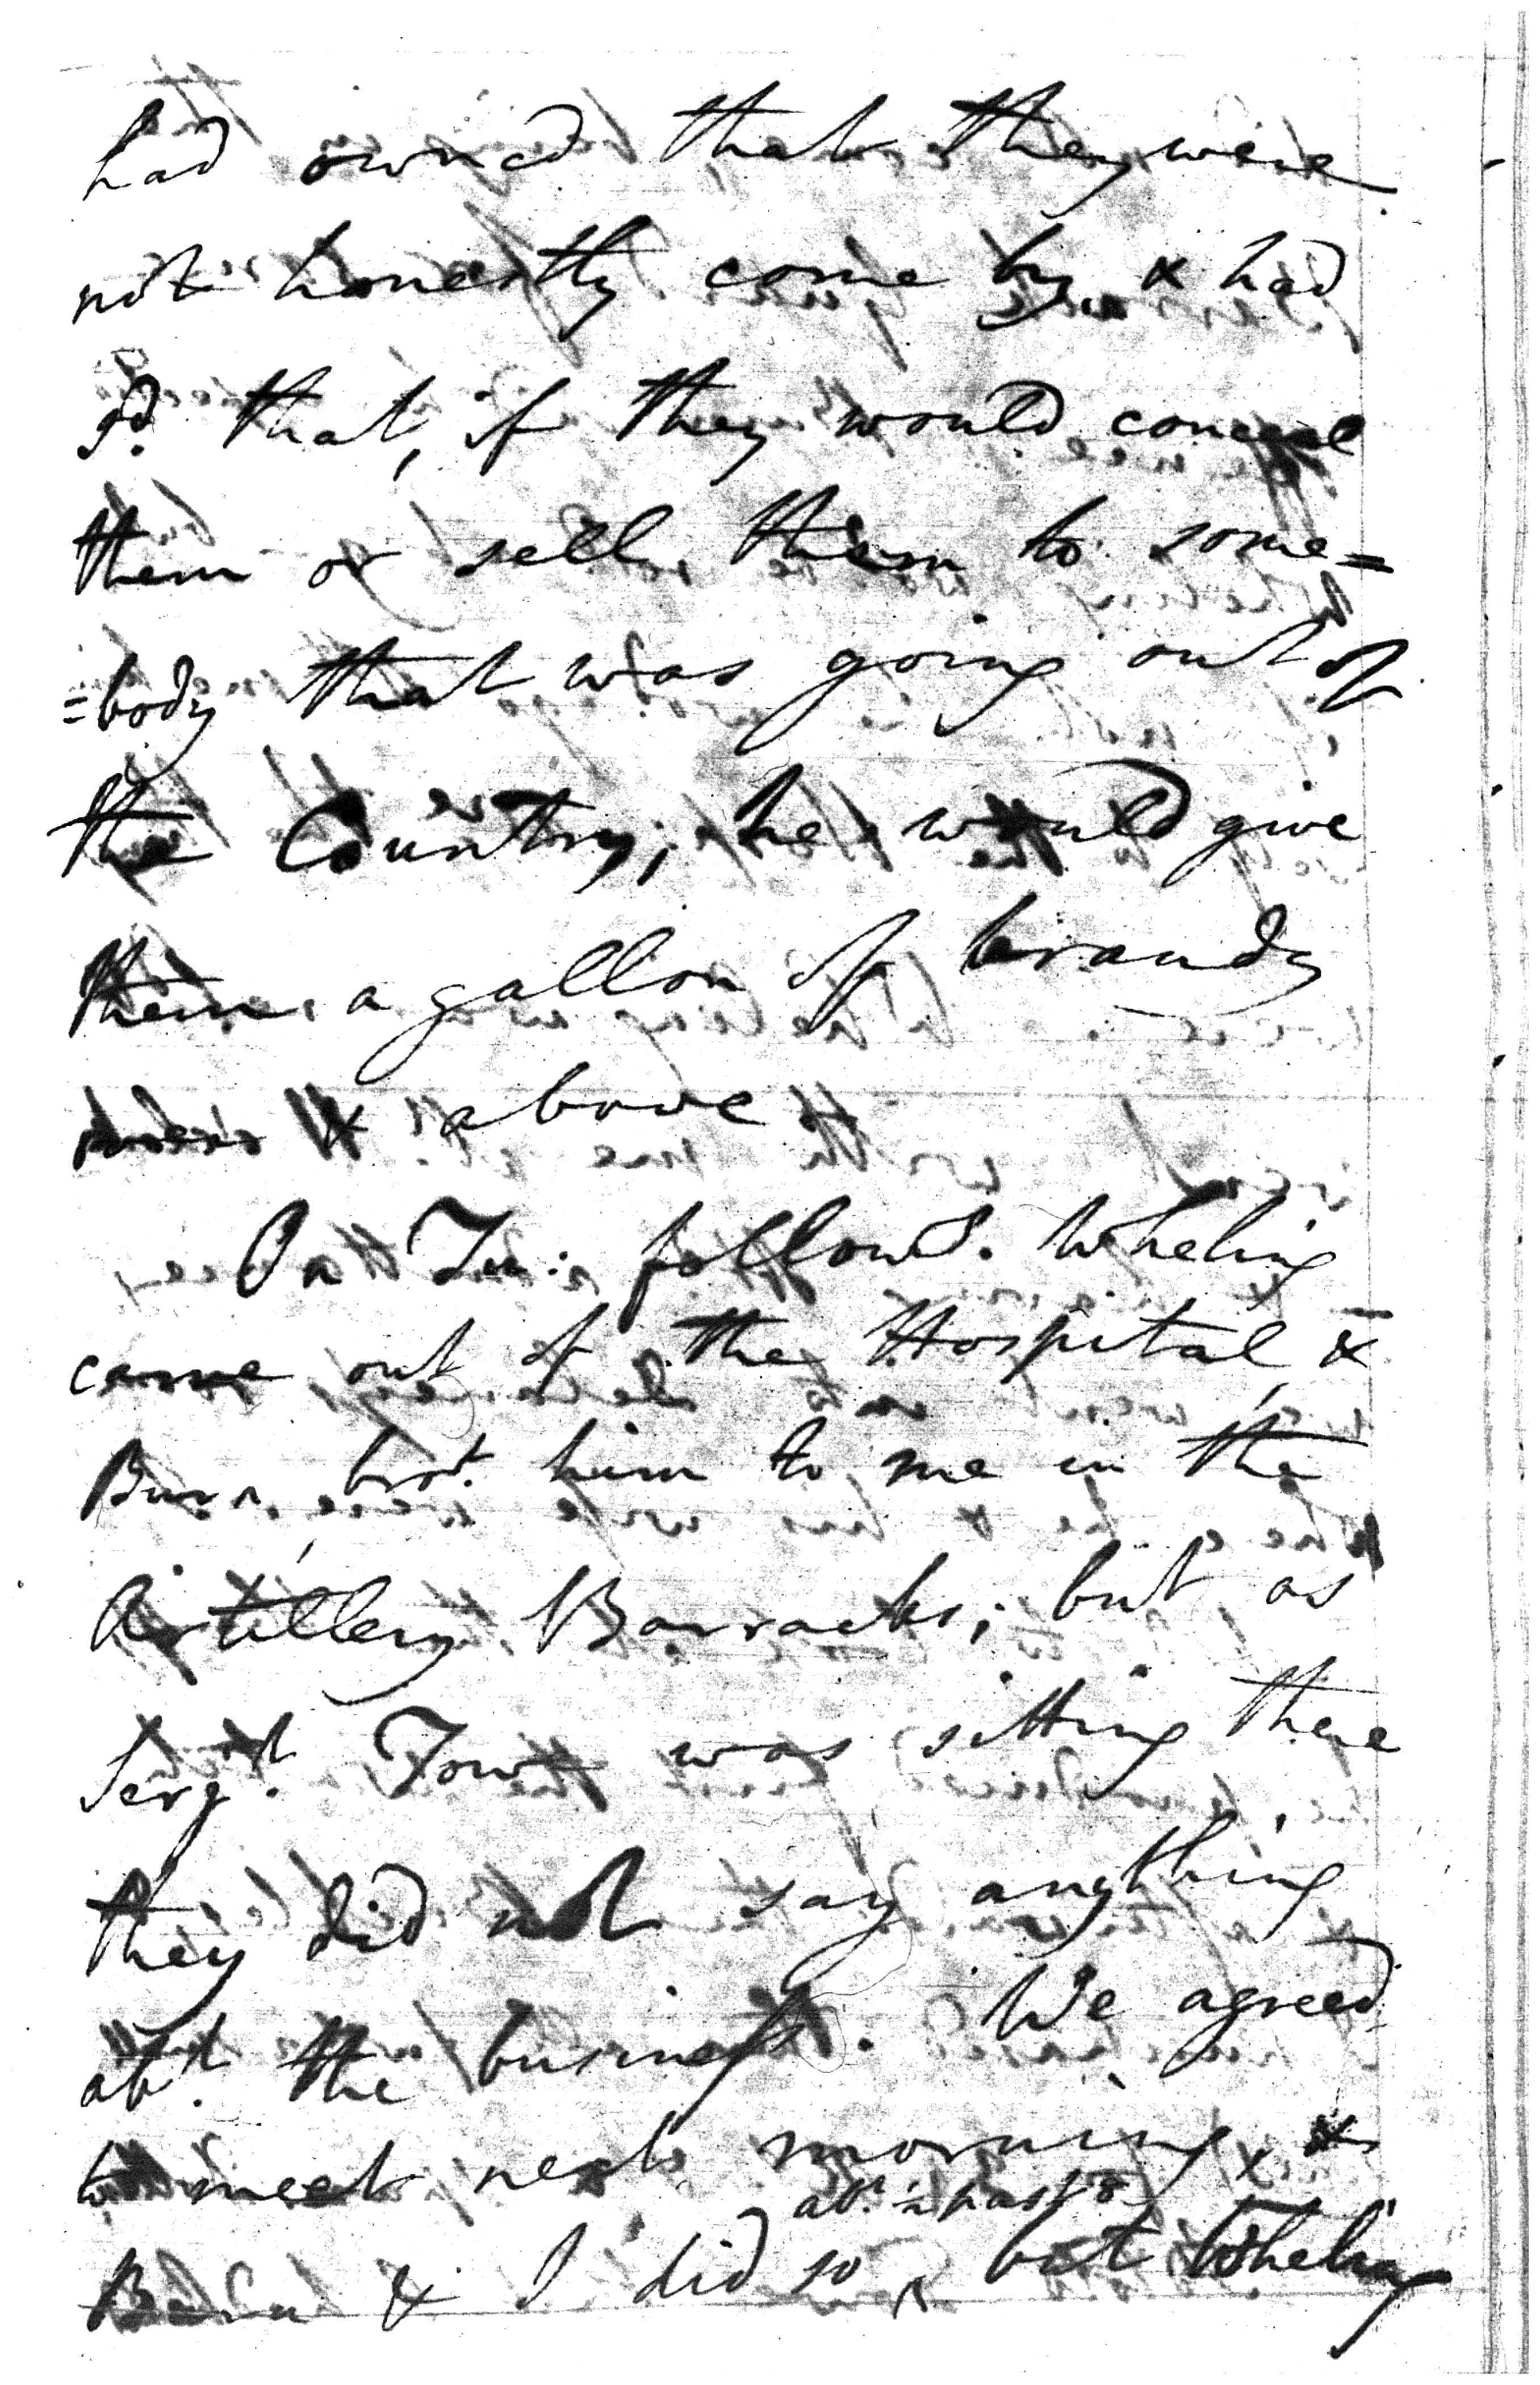 had owned that they were
not honestly come by, & had
sd. that, if they would conceal
them or sell them to some=
=body that was going out of
the Country, he would give
them a gallon of brandy
over & above
On Tu: followg. Wheling
came out of the Hospital, &
Burn brot. him to me in the
Artillery Barracks; but as
Sergt. Tow was sitting there
they did not say anything
abt. the business. We agreed
to meet next morning, &
abt. ½ past 8
Burn & I did so, but Wheling